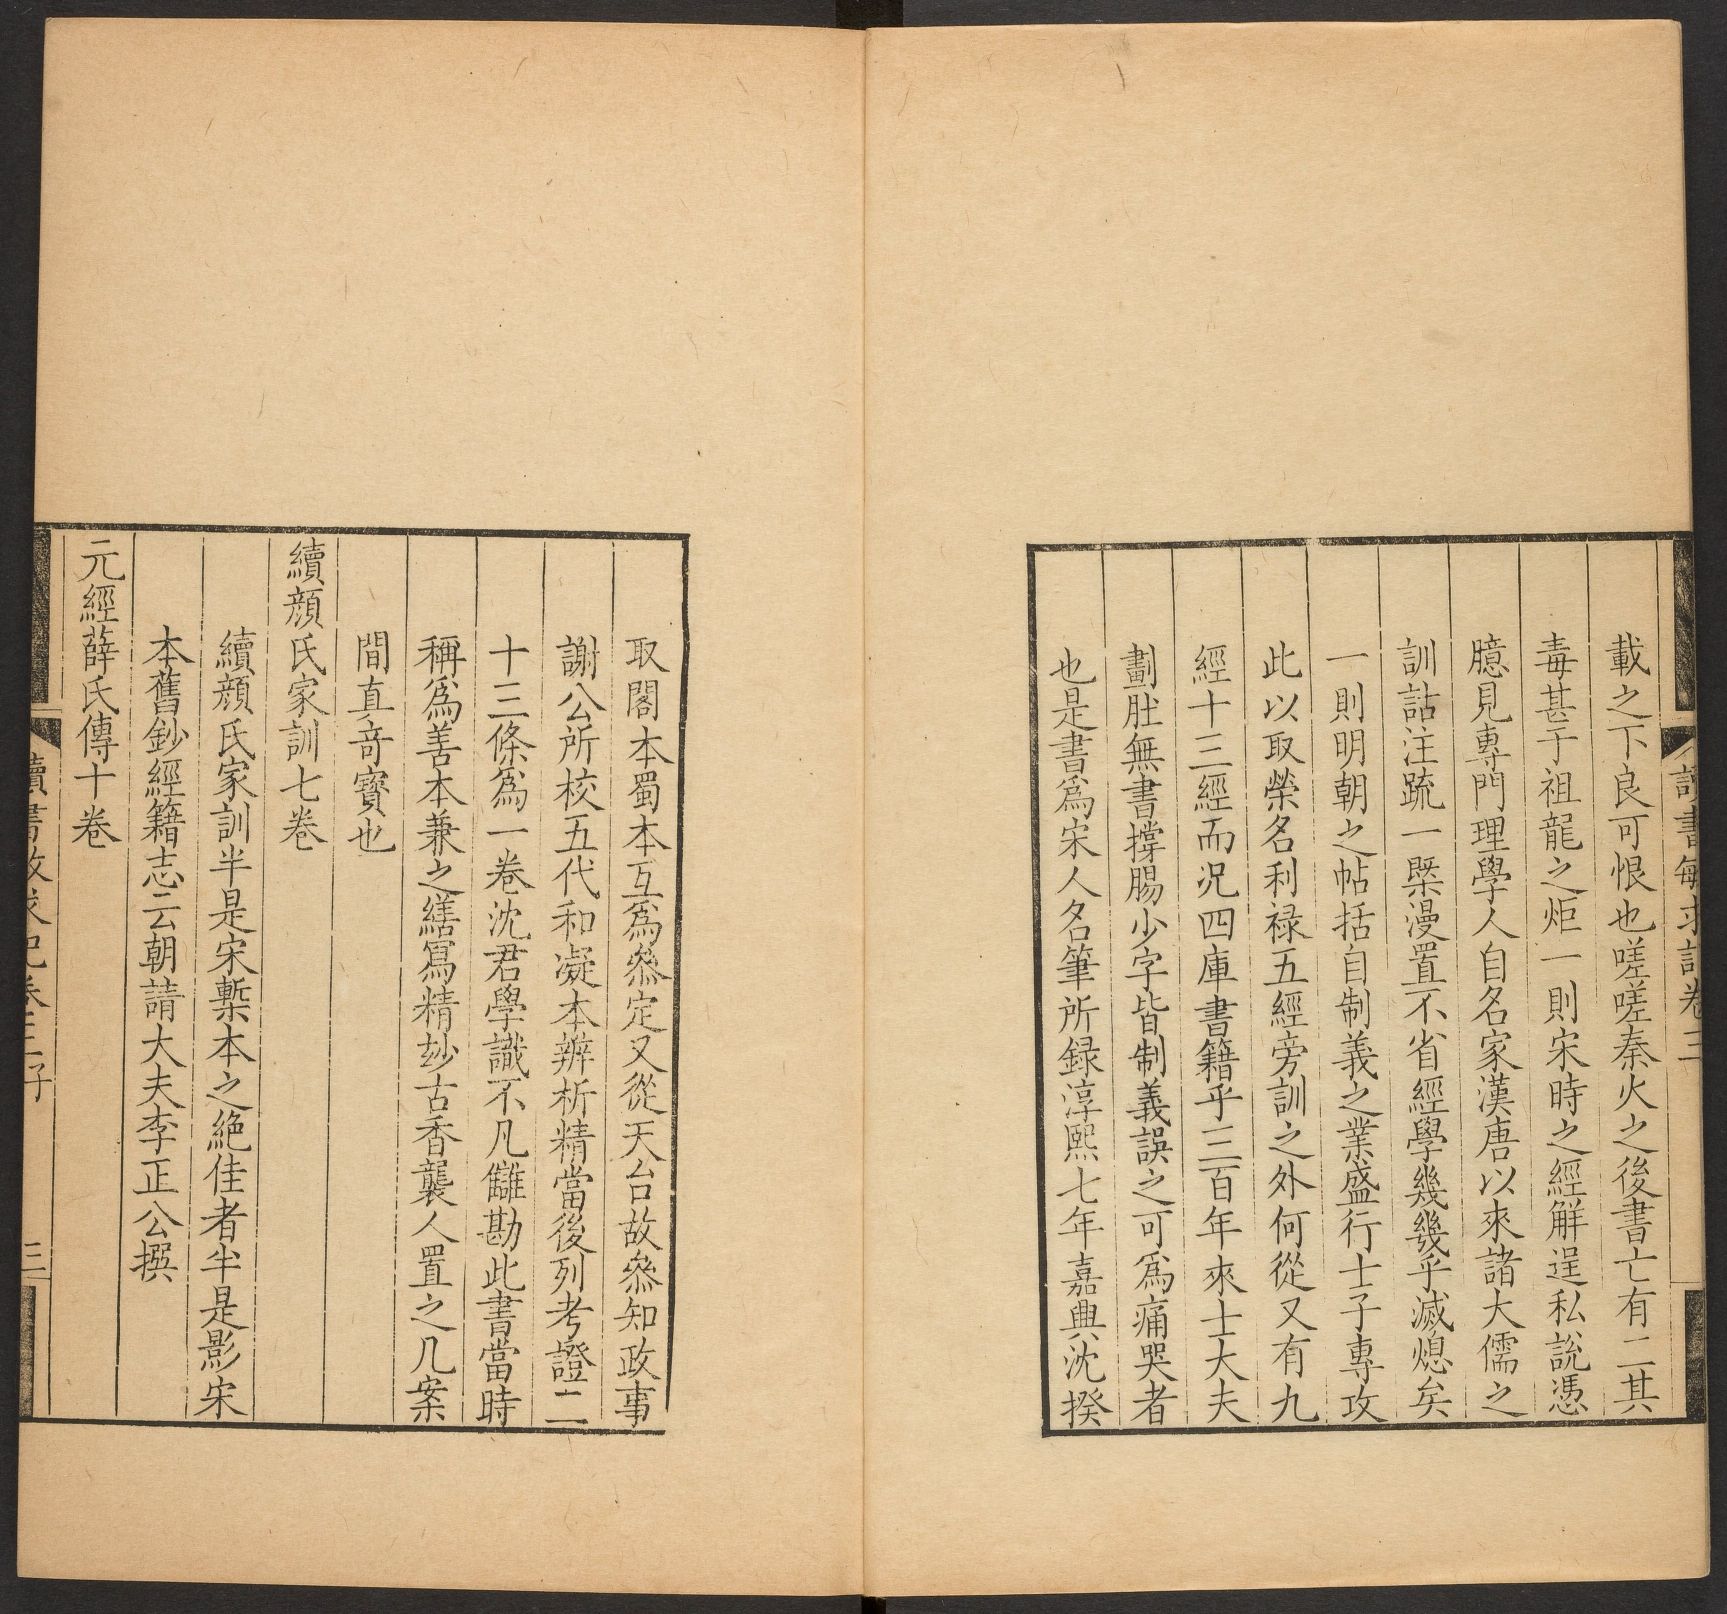 讀書敏求記卷三
載之下良可恨也嗟嗟秦火之後書亡有二其
毒甚于祖龍之炬一則宋時之經解逞私說憑
臆見專門理學人自名家漢唐以來諸大儒之
訓詁注疏一槩漫置不省經學幾幾乎滅熄矣
一則明朝之帖括自制義之業盛行士子專攻
此以取榮名利祿五經旁訓之外何從又有九
經十三經而况四庫書籍乎三百年來士大夫
劃肚無書撐腸少字皆制義誤之可爲痛哭者
也是書爲宋人名筆所録淳熙七年嘉興沈揆
取閣本蜀本互爲叅定又從天台故叅知政事
謝公所校五代和凝本辨析精當後列考證二
十三條爲一卷沈君學識不凡讎勘此書當時
稱爲善本兼之繕寫精玅古香襲人置之几案
間真竒寳也
續顔氏家訓七卷
續顔氏家訓半是宋槧本之絶佳者半是影宋
本舊鈔經籍志云朝請大夫李正公撰
元經薛氏傳十卷
讀書敏求記卷三子
三